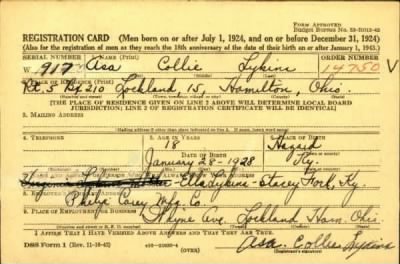 FORM APPROVED
REGISTRATION CARD (Men born on or after July 1, 1924, and on or before December 31, 1924)
(Also for the registration of men as they reach the 18th anniversary of the date of their birth on or after January 1, 1943.)
SERIAL NUMBER 1. NAME (Print) ORDER NUMBER
W 917 Asa Collie Lykins 14750 V
2. PLACE OF RESIDENCE (Print)
Rt. 5 Bx 210 Lockland, 15, Hamilton, Ohio
[THE PLACE OF RESIDENCE GIVEN ON LINE 2 ABOVE WILL DETERMINE LOCAL BOARD
JURISDICTION; LINE 2 OF REGISTRATION CERTIFICATE WILL BE IDENTICAL]
3. MAILING ADDRESS
4. TELEPHONE 5. AGE IN YEARS 6. PLACE OF BIRTH
18 Hazard
DATE OF BIRTH
January 28 - 1928 Ky.
Stacey Fork, Ky.
Philip Carey Mfg. Co.
9. PLACE OF EMPLOYMENT OR BUSINESS
Wayne Ave, Lockland Ham. Ohio.
I AFFIRM THAT I HAVE VERIFIED ABOVE ANSWERS AND THAT THEY ARE TRUE.
DSS Form 1 (Rev. 11-16-42) (OVER) Asa Collie Lykins